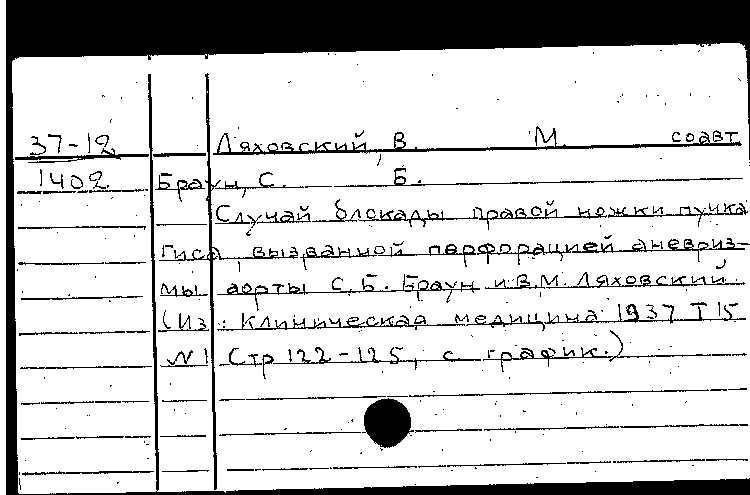 37-12 Ляховский, В. М. соавт
1402 Браун, С. Б.
Случай блокады правой ножки пучка
гиса, вызванной перфорацией аневриз-
мы аорты С.Б. Браун и В.М. Ляховский.
(Из: Клиническая медицина 1937 Т 15
N 1 Стр 122-125, с график.)